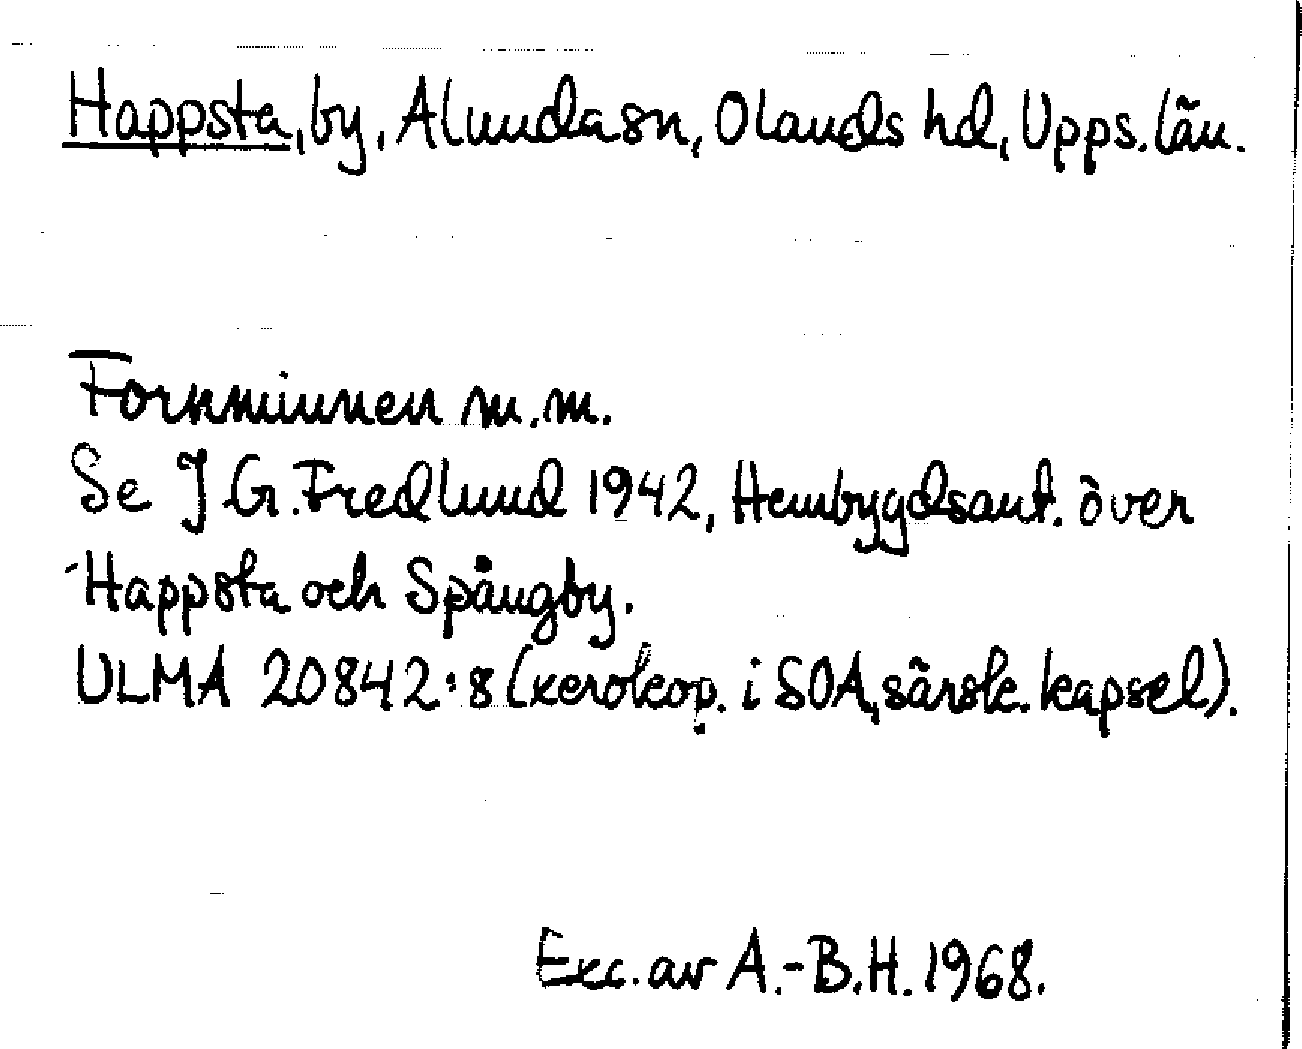 Happsta, by, Alunda sn, Olands hd, Upps. län.
Fornminnen m.m.
Se J G. Fredlund 1942, Hembygdsant. över
Happsta och Spångby.
ULMA 20842:8 (xerokop. i SOA, särsk. kapsel).
Exc. av A.-B.H. 1968.